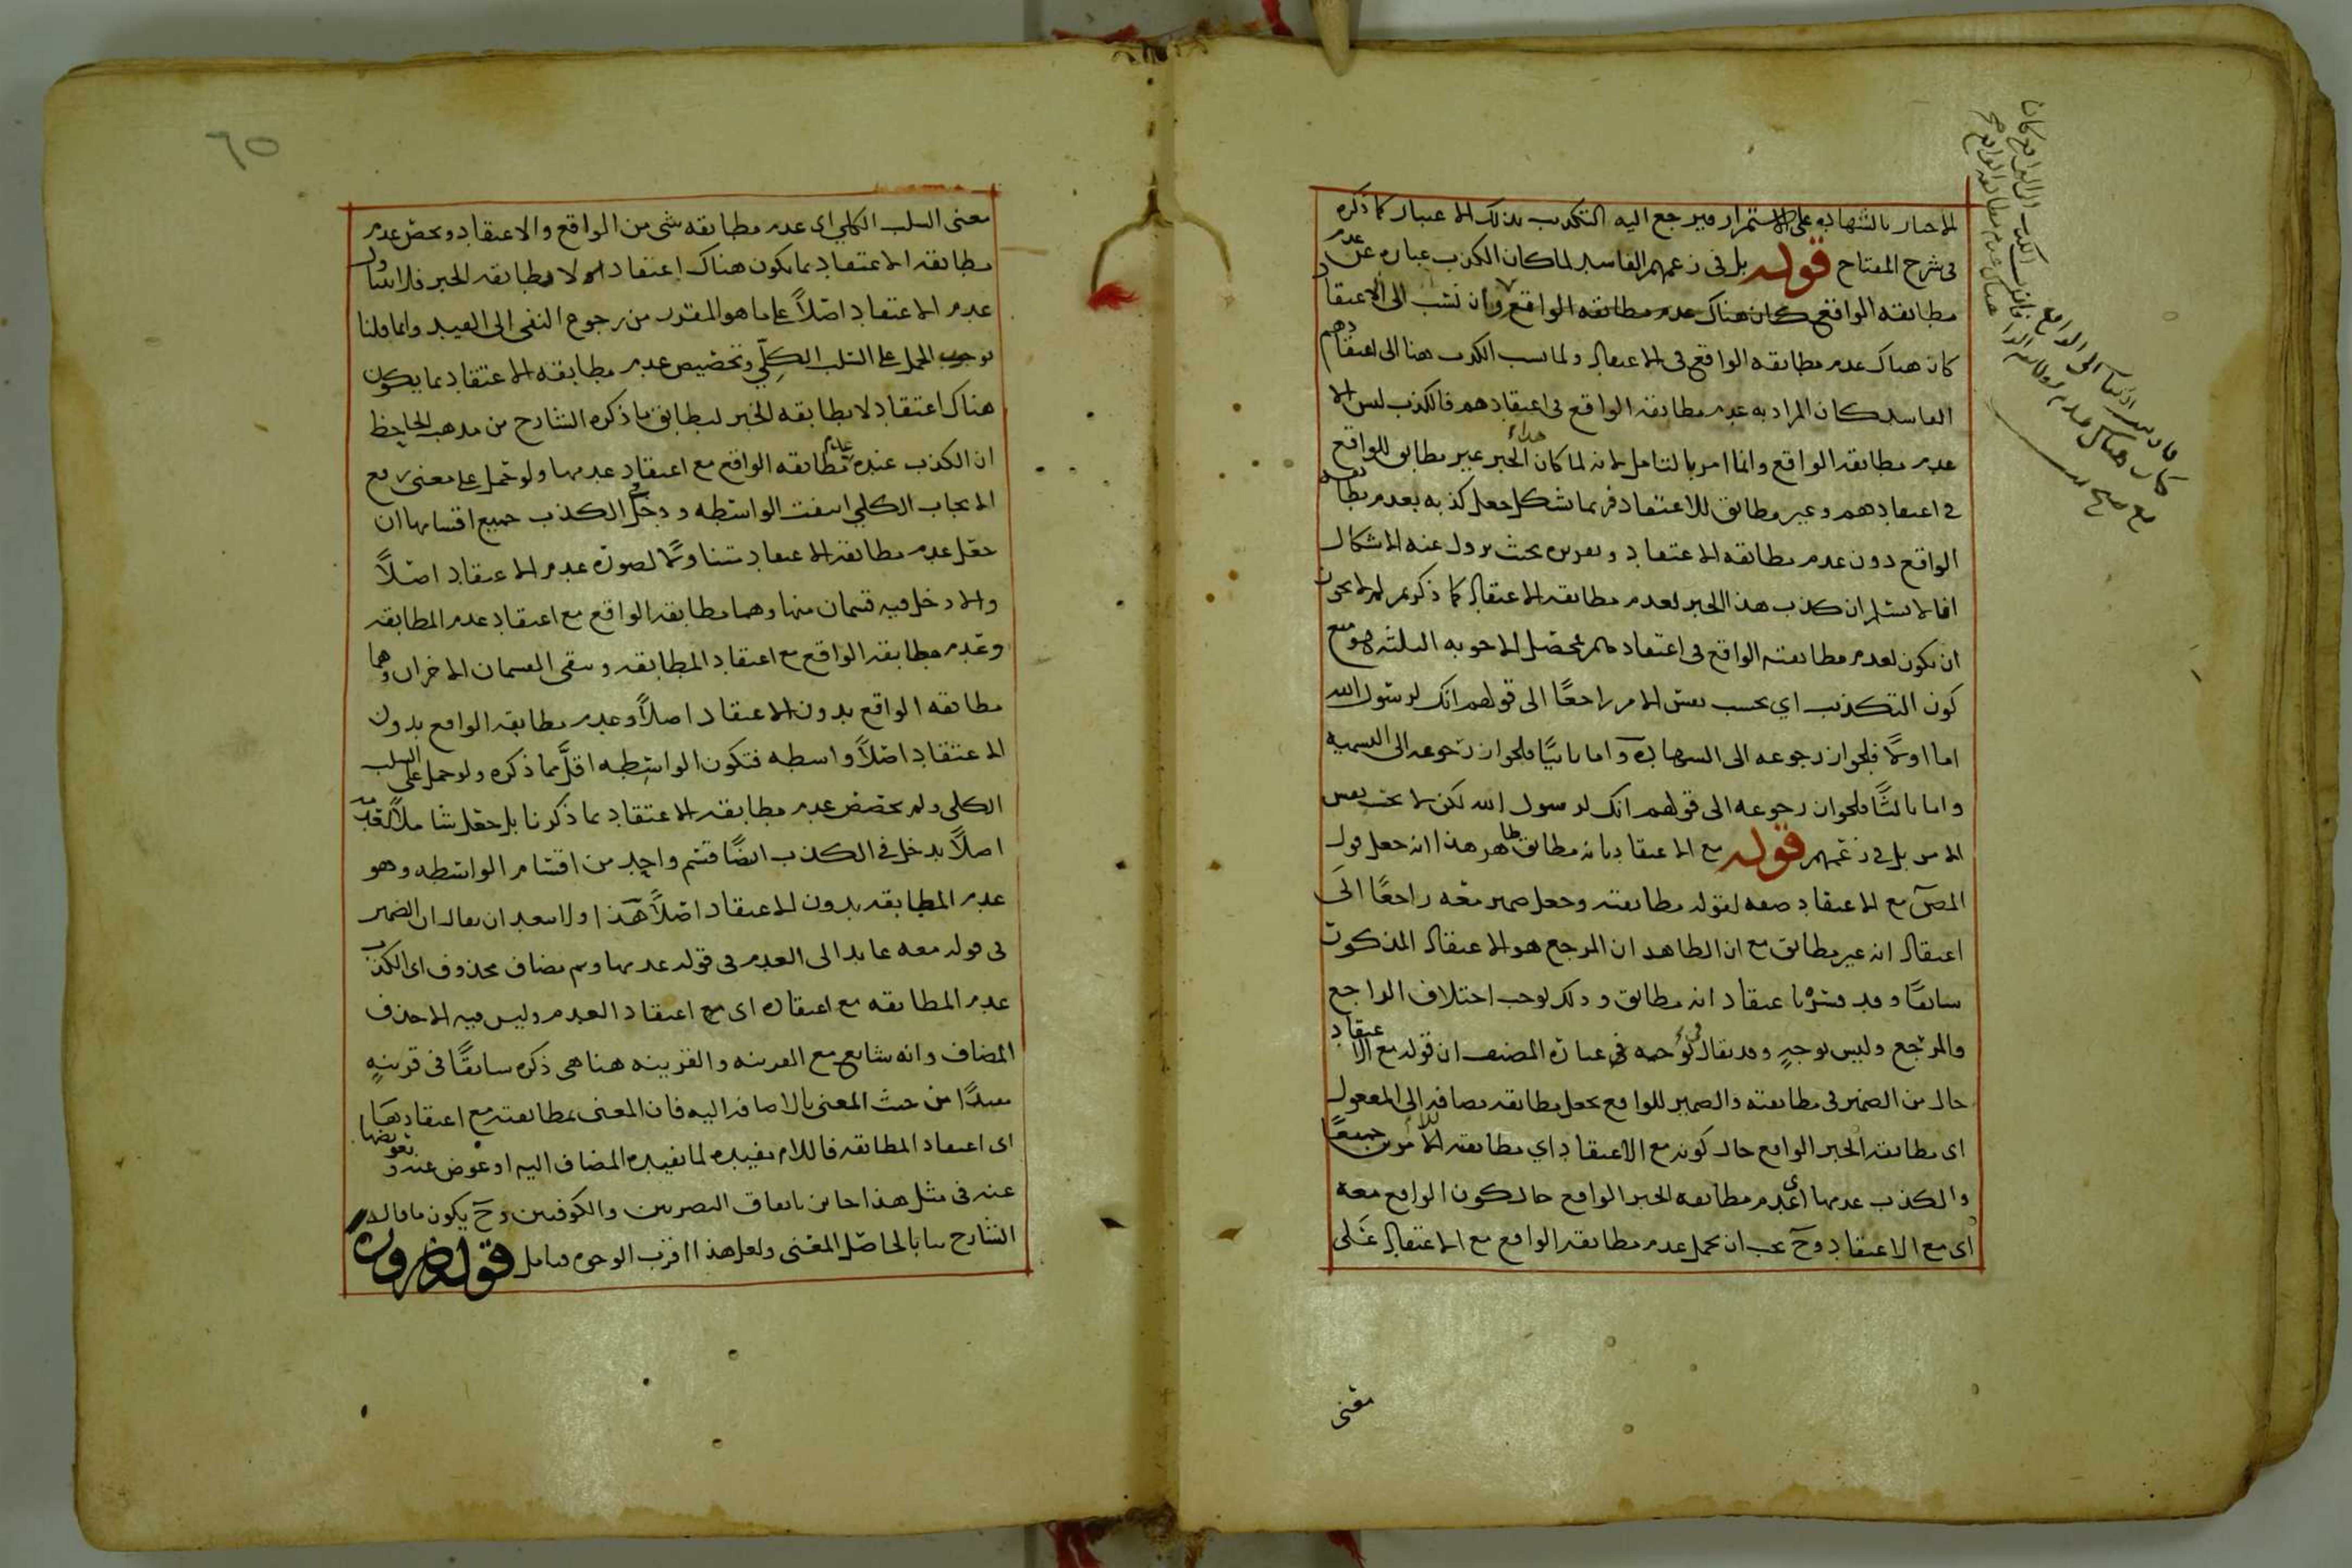 الاخبار بالشهادة على الاستمرار فيرجع اليه التكذيب بذلك الاعتبار كما ذكره
في شرح المفتاح قوله بل في زعمهم الفاسد لما كان الكذب عبارة عن عدم
مطابقة الواقع كان هناك عدم مطابقة الواقع وان نسب الى الاعتقاد
كان هناك عدم مطابقة الواقع في الاعتقاد ولما نسب الكذب هنا الى اعتقادهم
الفاسد كان المراد به عدم مطابقة الواقع في اعتقادهم فالكذب ليس الا
عدم مطابقة الواقع وانما امر بالتامل لانه لما كان هذا الخبر غير مطابق للواقع
في اعتقادهم وغير مطابق للاعتقاد فربما شكل جعل كذبه بعدم مطابقة
الواقع دون عدم مطابقة الاعتقاد وتقريره بحيث يزول عنه الاشكال
انا لا نسلم ان كذب هذا الخبر لعدم مطابقة الاعتقاد كما ذكرتم لم لا يجوز
ان يكون لعدم مطابقته الواقع في اعتقادهم محصل الاجوبة الثلثة هو منع
كون التكذيب اي بحسب نفس الامر راجعًا الى قولهم انك لرسول الله
اما اولًا فلجواز رجوعه الى الشهادة واما ثانيًا فلجواز رجوعه الى التسمية
واما ثالثًا فلجواز رجوعه الى قولهم انك لرسول الله لكن لا بحسب نفس
الامر بل في زعمهم قوله مع الاعتقاد بانه مطابق ظاهر هذا انه جعل قول
المص مع الاعتقاد صفه لقوله مطابقته وجعل ضمير معه راجعًا الى
اعتقاد انه غير مطابق مع ان الظاهر ان المرجع هو الاعتقاد المذكور
سابقًا وقد فسره باعتقاد انه مطابق وذلك يوجب اختلاف الراجع
والمرجع وليس بوجيه وقد يقال في توجيه عبارة المصنف ان قوله مع الاعتقاد
حال من الضمير في مطابقته والضمير للواقع بجعل مطابقه مضافه الى المفعول
اى مطابقة الخبر الواقع حال كونه مع الاعتقاد اي مطابقته للامرين جميعًا
والكذب عدمها اى عدم مطابقة الخبر الواقع حال كون الواقع معه
اى مع الاعتقاد وح يجب ان يحمل عدم مطابقة الواقع مع الاعتقاد على
معنى
معنى السلب الكلي اى عدم مطابقة شى من الواقع والاعتقاد ويخص عدم
مطابقة الاعتقاد بما يكون هناك اعتقاد لا مطابقه الخبر فلا يتناول
عدم الاعتقاد اصلًا على ما هو المقرر من رجوع النفى الى القيد وانما قلنا
بوجوب الحمل على السلب الكلّي وتخصيص عدم مطابقة الاعتقاد بما يكون
هناك اعتقاد لا يطابقه الخبر ليطابق ما ذكره الشارح من مذهب الجاحظ
ان الكذب عنده عدم مطابقة الواقع مع اعتقاد عدمها ولو حمل على معنى رفع
الايجاب الكلي انتفت الواسطه ودخل في الكذب جميع اقسامها ان
جعل عدم مطابقة الاعتقاد متناولًا لصورة عدم الاعتقاد اصلًا
والا دخل فيه قسمان منها وهما مطابقة الواقع مع اعتقاد عدم المطابقة
وعدم مطابقة الواقع مع اعتقاد المطابقه وبقى القسمان الاخران وهما
مطابقه الواقع بدون الاعتقاد اصلًا وعدم مطابقة الواقع بدون
الاعتقاد اصلًا واسطه فتكون الواسطه اقلّ مما ذكره ولو حمل على السلب
الكلي ولم يخصص عدم مطابقة الاعتقاد بما ذكرنا بل جعل شاملًا لعدمه
اصلًا يدخل في الكذب ايضًا قسم واحد من اقسام الواسطه وهو
عدم المطابقه بدون الاعتقاد اصلًا هذا ولا يبعد ان يقال ان الضمير
في قوله معه عايد الى العدم في قوله عدمها وثم مضاف محذوف اى الكذب
عدم المطابقه مع اعتقاده اى مع اعتقاد العدم وليس فيه الا حذف
المضاف وانه شايع مع القرينه والقرينه هنا هى ذكره سابقًا في قرينه
مقيدًا من حيث المعنى بالاضافه اليه فان المعنى بمطابقته مع اعتقادها
اى اعتقاد المطابقه فاللام مفيده لما يفيده المضاف اليه او عوض عنه وتعويضها
عنه في مثل هذا جايز باتفاق البصريين والكوفيين وح يكون ما قاله
الشارح بيانا لحاصل المعنى ولعل هذا اقرب الوجوه فتامل قوله ضروره
٦٥